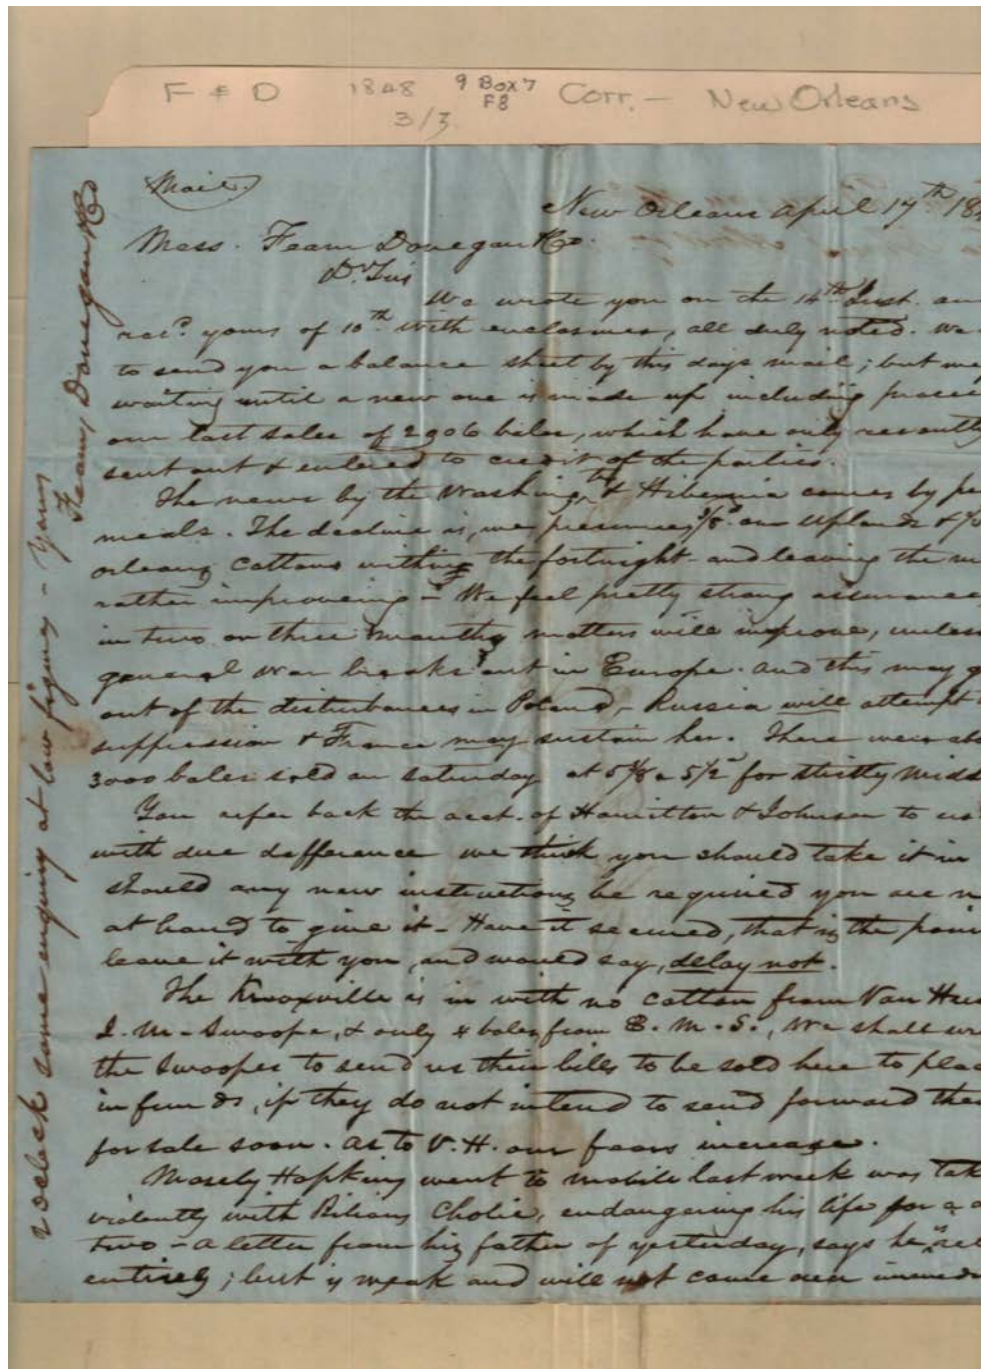 F & D 1848 9 Box 7 Corr. - New Orleans
3/3 F8
Mail
New Orleans April 17th 184
Mess. Fearn Donegan & Co.
Dr. Sirs
We wrote you on the 14th Inst. an
recd. yours of 10th with enclosures, all duly noted. We
to send you a balance sheet by this days mail; but
waiting until a new one is made up including procee
our last sales of 2906 bales, which have only recently
sent out & entered to credit of the parties.
The news by the Washingtn & Hibernia comes by
meals. The decline is, we presume, 3/8 on Uplands &
Orleans Cottons within the fortnight - and leaving the
rather improveing - We feel pretty strong assurance
in two or three months matters will improve, unless
general war breaks out in Europe. and this may g
out of the disturbances in Poland, - Russia will attempt
suppression & France may sustain her. There were ab
3000 bales sold on saturday at 5 3/8 a 5 1/2 for strictly midd
You refer back the acct. of Hamilton & Johnson to us
with due defference we think you should take it in
should any new instructions be required you are n
at hand to give it - Have it secured, that is the poin
leave it with you, and would say, delay not.
The Knoxville is in with no cotton from Van
J. M. Swoope, & only 4 bales from E. M. S., We shall
the Swoopes to send us their bills to be sold here to plac
in funds, if they do not intend to send forward the
for sale soon. as to V. H. our fears increase.
Mosely Hopkins went to mobile last week was tak
violently with Bilious Cholic, endangering his life for a
two - a letter from his father of yesterday, says he is
entirely; but is weak and will not come over immed
2 oclock some enquiry at low figures - Yours
Fearn, Donegan & Co